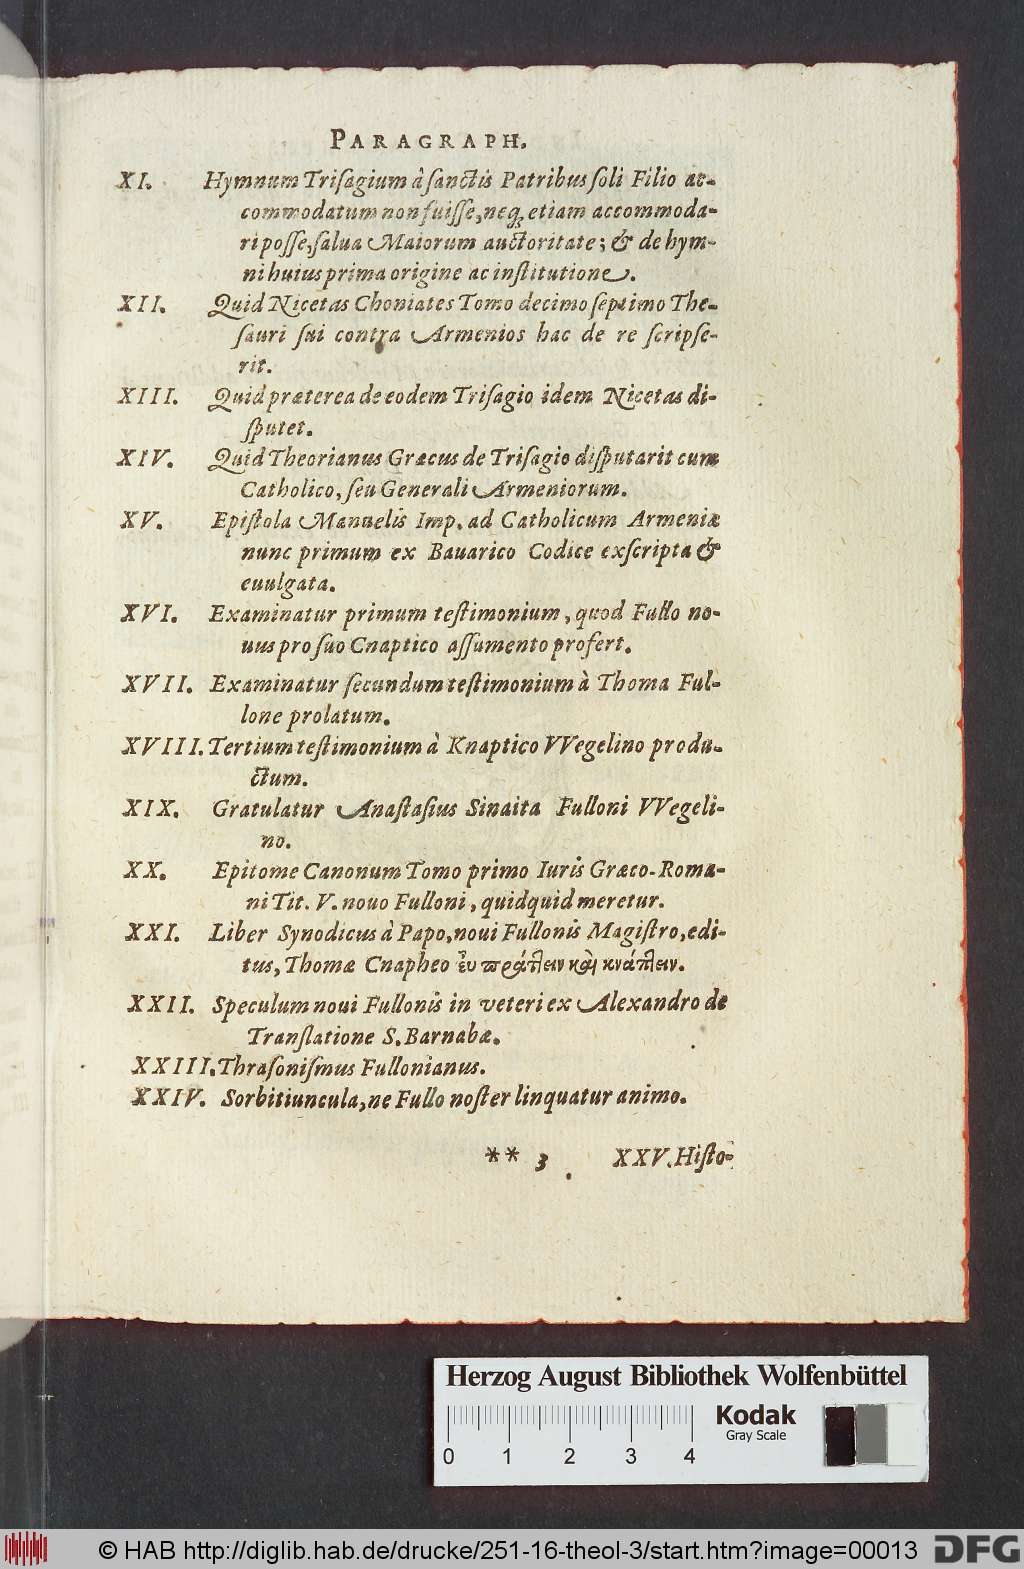 PARAGRAPH.
XI. Hymnum Triſagium à ſanctis Patribus ſoli Filio ac-
commodatum non fuiſſe, neq; etiam accommoda-
ri poſſe, ſalua Maiorum auctoritate; & de hym-
ni huius prima origine ac inſtitutione.
XII. Quid Nicetas Choniates Tomo decimo ſeptimo The-
ſauri ſui contra Armenios hac de re ſcripſe-
rit.
XIII. Quid præterea de eodem Triſagio idem Nicetas di-
ſputet.
XIV. Quid Theorianus Græcus de Triſagio diſputarit cum
Catholico, ſeu Generali Armeniorum.
XV. Epiſtola Manuelis Imp. ad Catholicum Armeniæ
nunc primum ex Bauarico Codice exſcripta &
euulgata.
XVI. Examinatur primum teſtimonium, quod Fullo no-
uus pro ſuo Cnaptico aſſumento profert.
XVII. Examinatur ſecundum teſtimonium à Thoma Ful-
lone prolatum.
XVIII. Tertium teſtimonium à Knaptico VVegelino produ-
ctum.
XIX. Gratulatur Anaſtaſius Sinaita Fulloni VVegeli-
no.
XX. Epitome Canonum Tomo primo Iuris Græco-Roma-
ni Tit. V. nouo Fulloni, quidquid meretur.
XXI. Liber Synodicus à Papo, noui Fullonis Magiſtro, edi-
tus, Thomæ Cnapheo ἐυ πράτlειν καὶ κνάπlειν.
XXII. Speculum noui Fullonis in veteri ex Alexandro de
Tranſlatione S. Barnabæ.
XXIII. Thraſoniſmus Fullonianus.
XXIV. Sorbitiuncula, ne Fullo noſter linquatur animo.
** 3 XXV. Hiſto-
Herzog August Bibliothek Wolfenbüttel
Kodak
Gray Scale
0 1 2 3 4
© HAB http://diglib.hab.de/drucke/251-16-theol-3/start.htm?image=00013 DFG